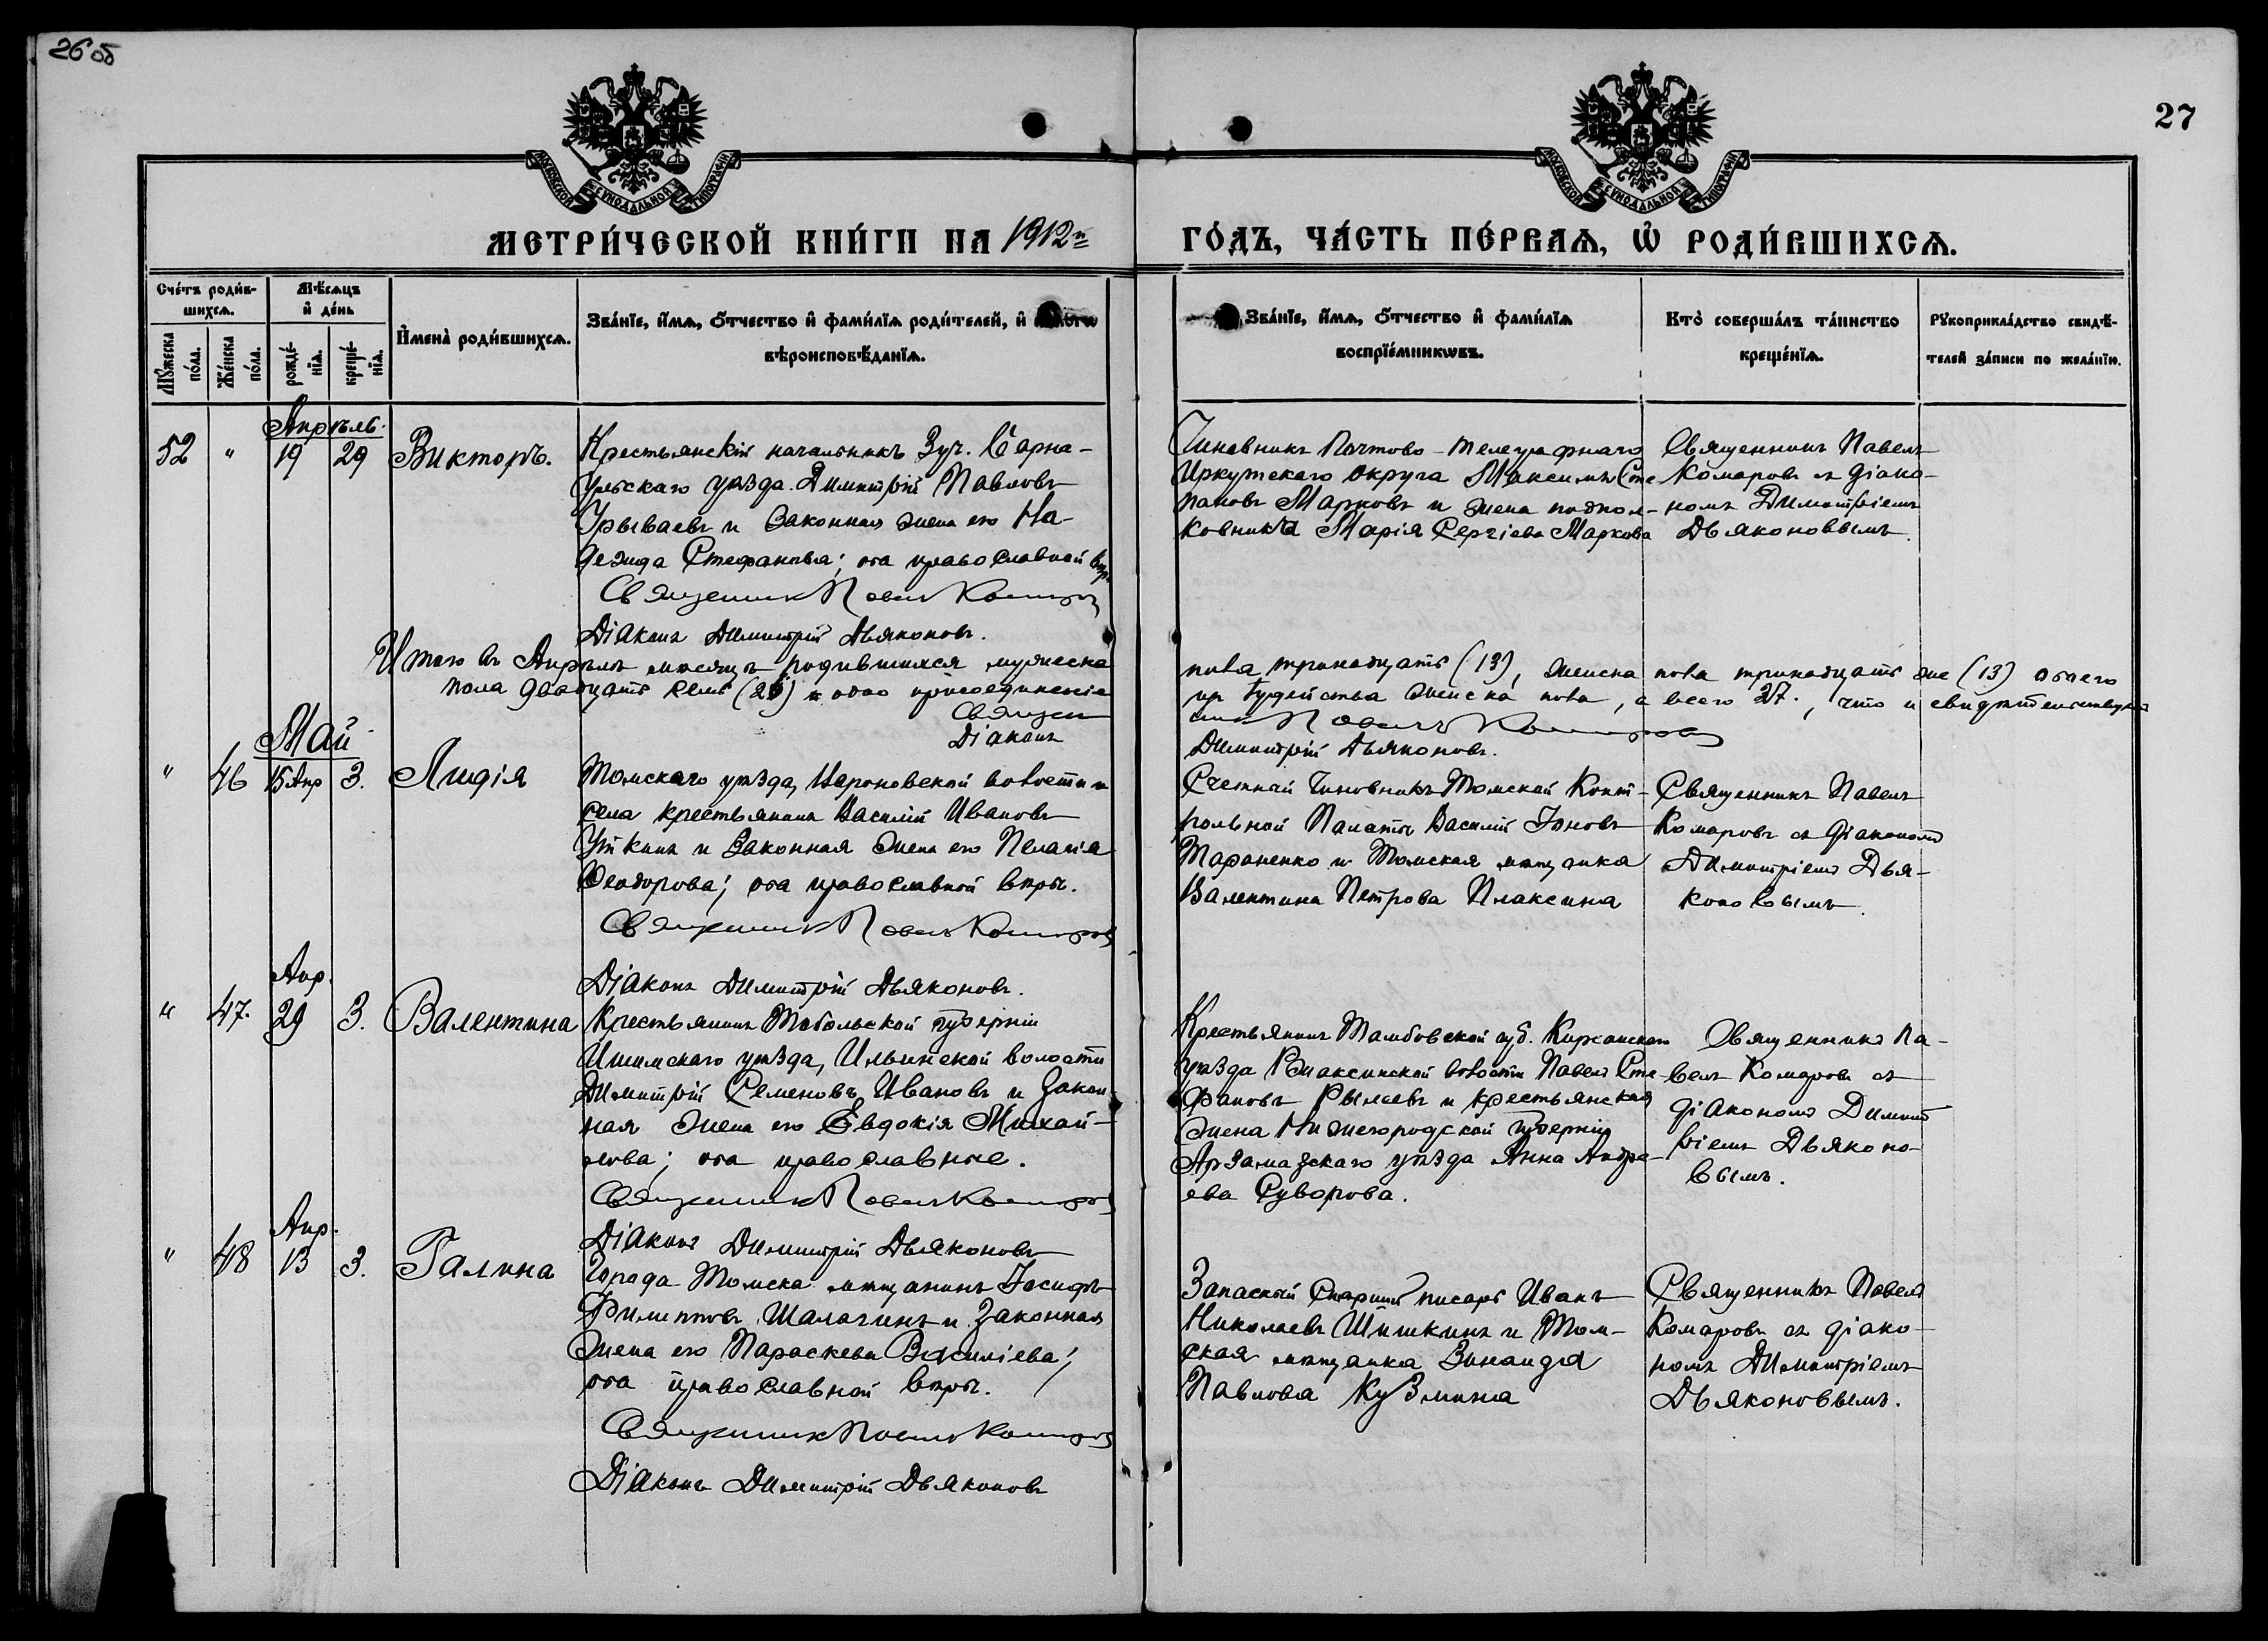 26 об
27
МОСКОВСКОЙ СѴНОДАЛЬНОЙ ТИПОГРАФІИ
МОСКОВСКОЙ СѴНОДАЛЬНОЙ ТИПОГРАФІИ
МЕТРИ́ЧЕСКОЙ КНИ́ГИ НА 1912й
ГО́ДЪ, ЧА́СТЬ ПЕ́РВАѦ, Ѡ РОДИ́ВШИХСѦ.
Сче́тъ роди́в-
шихсѧ.
Мѣ́сѧцъ
и де́нь
Мꙋ́жеска по́ла.
Же́нска по́ла.
рожде́-
нїѧ.
креще́-
нїѧ.
И҆мена̀ роди́вшихсѧ.
Зва́нїе, и҆́мѧ, ѻ҆́тчество и҆ фами́лїѧ роди́телей, и҆
вѣроисповѣ́данїѧ.
Зва́нїе, и҆́мѧ, ѻ҆́тчество и҆ фами́лїѧ
воспрїе́мникѡвъ.
Кто̀ соверша́лъ та́инство
креще́нїѧ.
Рꙋкоприкла́дство свидѣ́-
телей за́писи по жела́нїю.
Апрѣль.
52 " 19 29 Викторъ.
Крестьянскій начальникъ 3 уч. Барна-
ульскаго уѣзда Димитрій Павловъ
и законная жена его На-
дежда Стефанова; оба православной вѣр.
Священникъ Павелъ Комаровъ
Діаконъ Димитрій Дьяконовъ.
Чиновникъ Почтово-телеграфнаго
Иркутскаго округа Максимъ Сте
пановъ Марковъ и жена подпол-
ковника Марія Сергіева Маркова
Священникъ Павелъ
Комаровъ съ діако-
номъ Димитріемъ
Дьяконовымъ.
Итого въ Апрѣлѣ мѣсяцѣ родившихся мужеска
пола тринадцать (13), женска пола тринадцать же (13) обоего
пола двадцать (26) и одно присоединеніе
изъ Іудейства женска пола, а всего 27, что и свидѣтельствуютъ
Священ
никъ Павелъ Комаровъ
Діаконъ
Димитрій Дьяконовъ.
Май
" 46 15 Апр 3. Лидія
Томскаго уѣзда, волости и
села крестьянинъ Василій Ивановъ
Уткинъ и законная жена его Пелагія
Ѳеодорова; оба православной вѣры.
Священникъ Павелъ Комаровъ
Діаконъ Димитрій Дьяконовъ.
Счетный Чиновникъ Томской Конт-
рольной Палаты Василій Іоновъ
Тараненко и Томская мѣщанка
Валентина Петрова Плаксина
Священникъ Павелъ
Комаровъ съ діакономъ
Димитріемъ Дья-
коновымъ.
Апр.
" 47. 29 3. Валентина
Крестьянинъ Тобольской губерніи
Ишимскаго уѣзда, Ильинской волости
Димитрій Семеновъ Ивановъ и закон
ная жена его Евдокія Михай-
лова; оба православные.
Священникъ Павелъ Комаровъ
Діаконъ Димитрій Дьяконовъ
Крестьянинъ Тамбовской губ. Кирсанскаго
уѣзда волости Павелъ Сте
фановъ и крестьянская
жена Нижегородской губерніи
Арзамазскаго уѣзда Анна Андре-
ева Суворова.
Священникъ Па-
велъ Комаровъ съ
діакономъ Димит
ріемъ Дьяконо-
вымъ.
Апр.
" 48 13 3. Галина
Города Томска мѣщанинъ Іосифъ
Филипповъ Шалагинъ и законная
жена его Параскева Василіева;
оба православной вѣры.
Священникъ Павелъ Комаровъ
Діаконъ Димитрій Дьяконовъ
Запасный старшій писарь Иванъ
Николаевъ Шишкинъ и Том-
ская мѣщанка Зинаида
Павлова Кузмина
Священникъ Павелъ
Комаровъ съ діако-
номъ Димитріемъ
Дьяконовымъ.